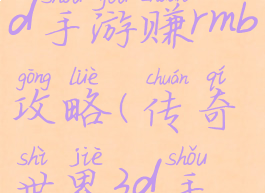 d手游赚rmb
gōng lüè chuán qí
攻略(传奇
shì jiè shǒu
世界3d手